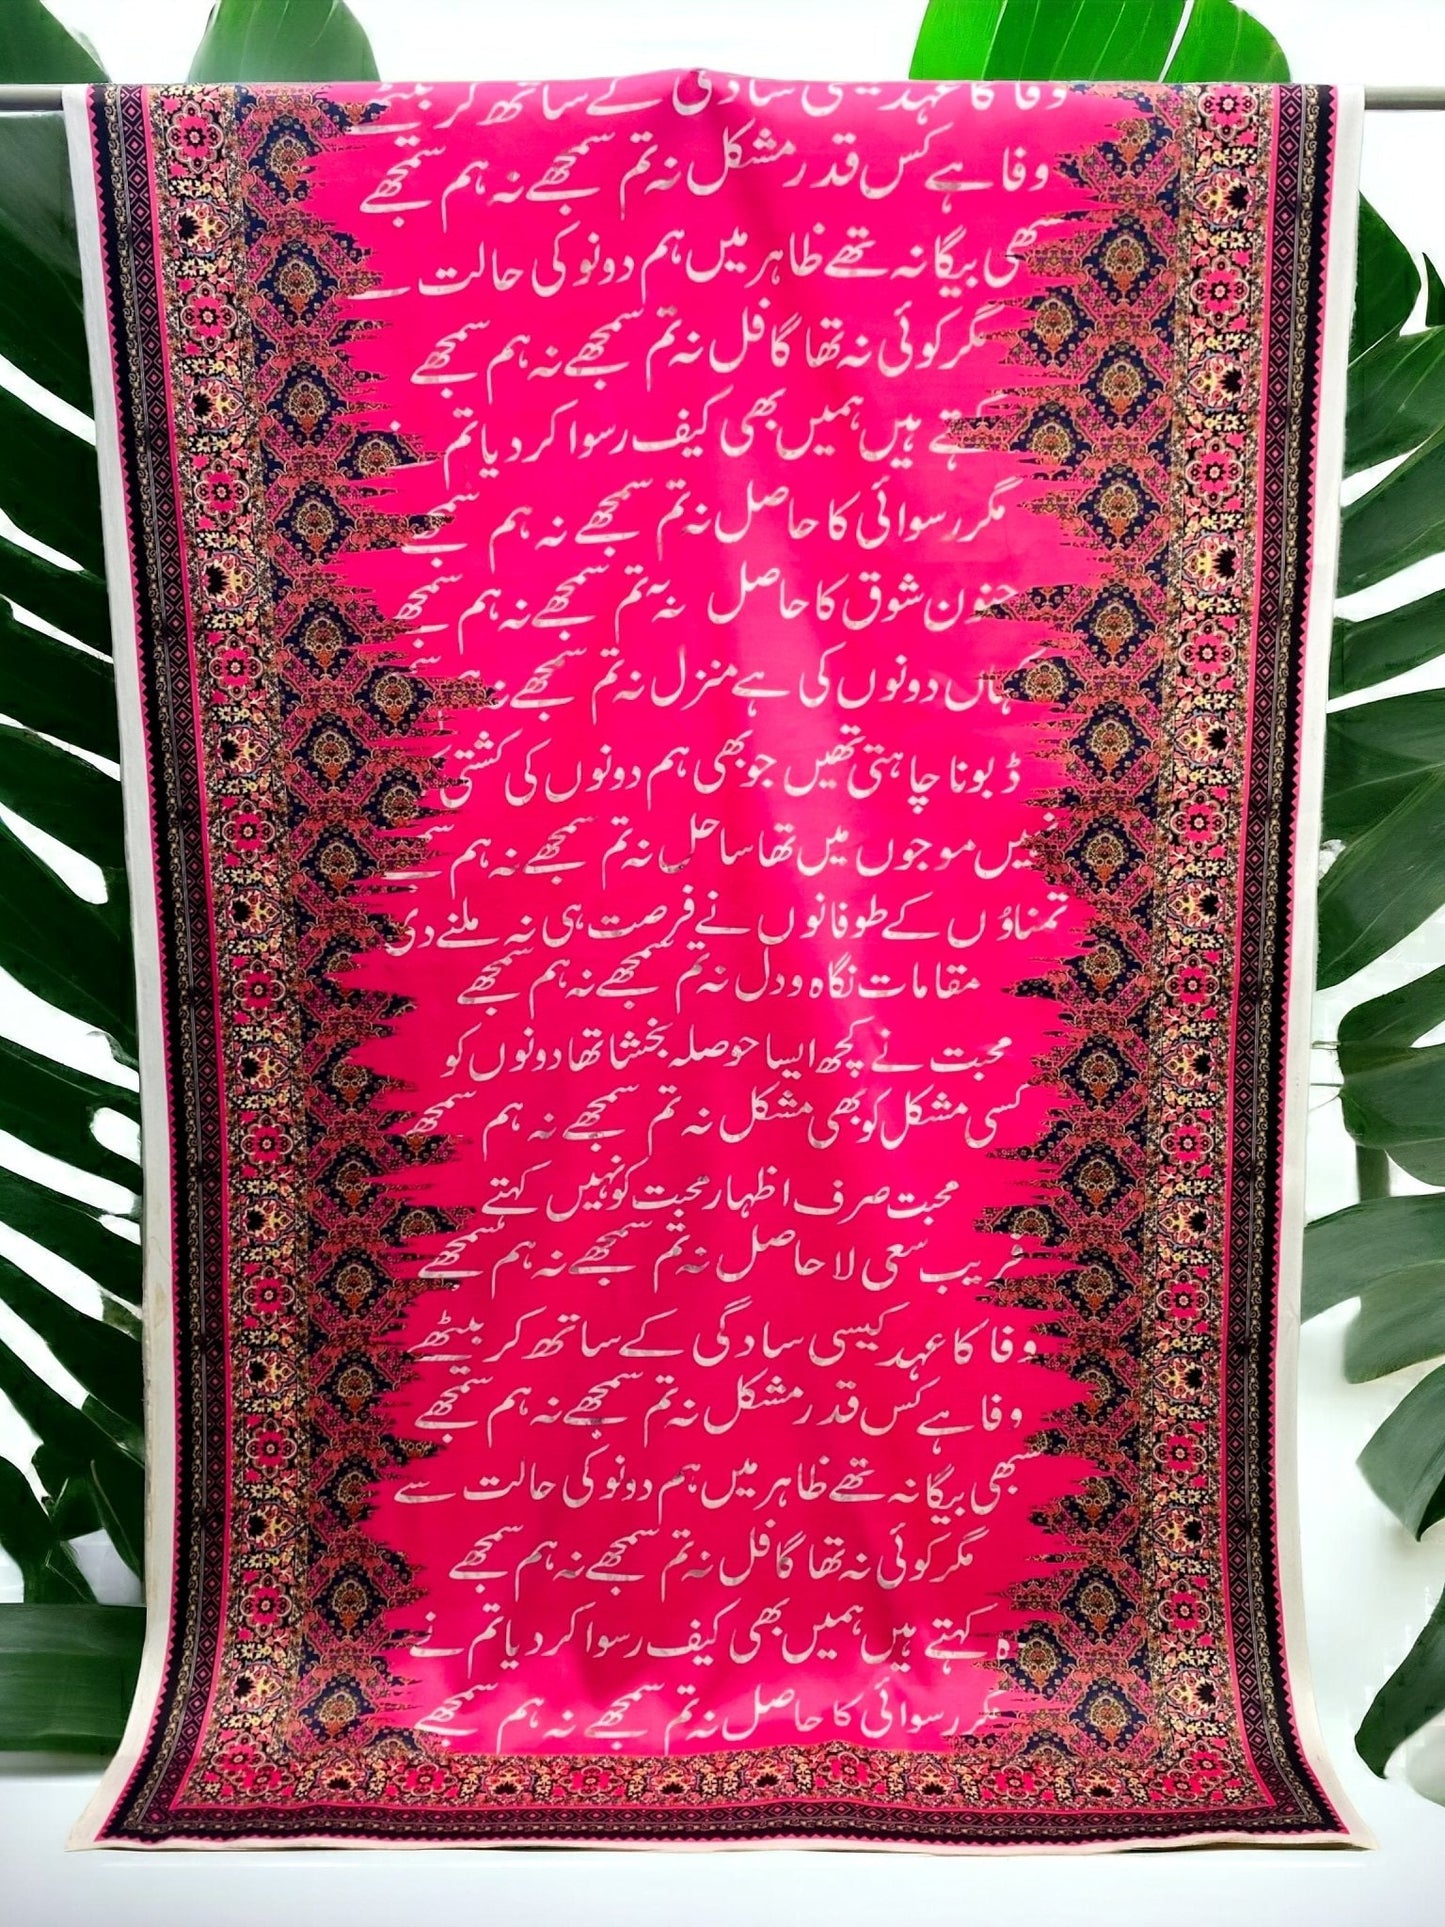 وفا کا عہد کیسی سادگی کے ساتھ کر بیٹھے
وفا ہے کس قدر مشکل نہ تم سمجھے نہ ہم سمجھے
سبھی بیگانہ تھے ظاہر میں ہم دونو کی حالت سے
مگر کوئی نہ تھا گافل نہ تم سمجھے نہ ہم سمجھے
کہتے ہیں ہمیں بھی کیف رسوا کر دیا تم نے
مگر رسوائی کا حاصل نہ تم سمجھے نہ ہم سمجھے
جنون شوق کا حاصل نہ تم سمجھے نہ ہم سمجھے
کہاں دونوں کی ہے منزل نہ تم سمجھے نہ ہم سمجھے
ڈبونا چاہتی تھیں جو بھی ہم دونوں کی کشتی
میں موجوں میں تھا ساحل نہ تم سمجھے نہ ہم سمجھے
تمناؤں کے طوفانوں نے فرصت ہی نہ ملنے دی
مقامات نگاہ و دل نہ تم سمجھے نہ ہم سمجھے
محبت نے کچھ ایسا حوصلہ بخشا تھا دونوں کو
کسی مشکل کو بھی مشکل نہ تم سمجھے نہ ہم سمجھے
محبت صرف اظہار محبت کو نہیں کہتے
فریب سعی لا حاصل نہ تم سمجھے نہ ہم سمجھے
وفا کا عہد کیسی سادگی کے ساتھ کر بیٹھے
وفا ہے کس قدر مشکل نہ تم سمجھے نہ ہم سمجھے
سبھی بیگانہ تھے ظاہر میں ہم دونو کی حالت سے
مگر کوئی نہ تھا گافل نہ تم سمجھے نہ ہم سمجھے
وہ کہتے ہیں ہمیں بھی کیف رسوا کر دیا تم نے
مگر رسوائی کا حاصل نہ تم سمجھے نہ ہم سمجھے